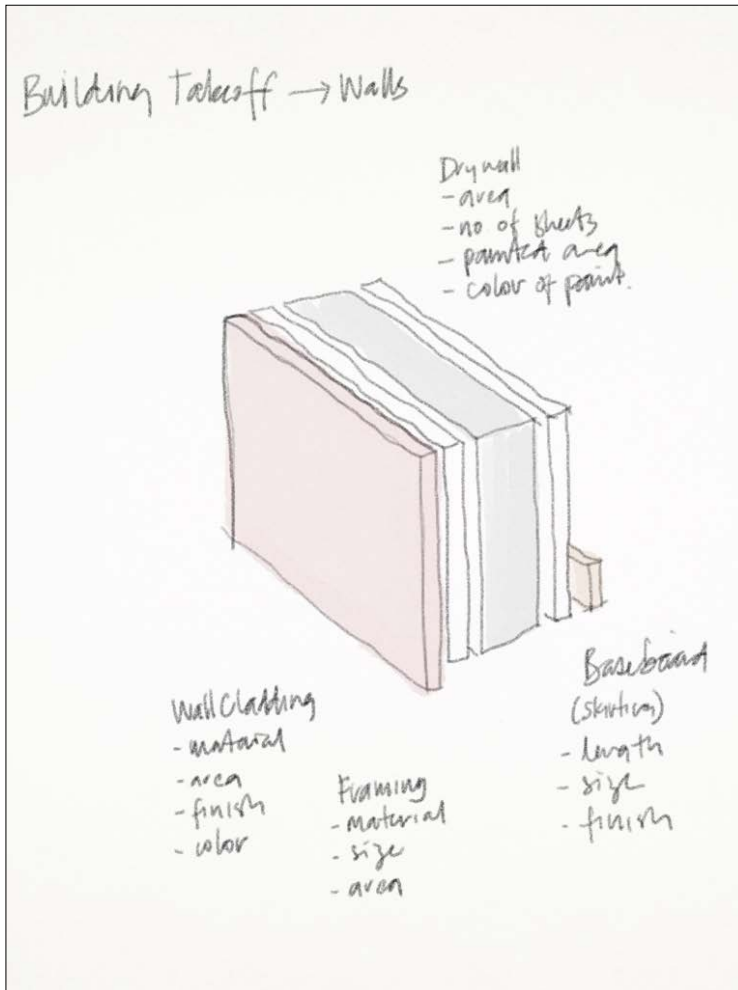 Building Takeoff → Walls
Drywall
- area
- no of sheets
- painted area
- color of paint.
Wall Cladding
- material
- area
- finish
- color
Framing
- material
- size
- area
Baseboard
(skirting)
- length
- size
- finish